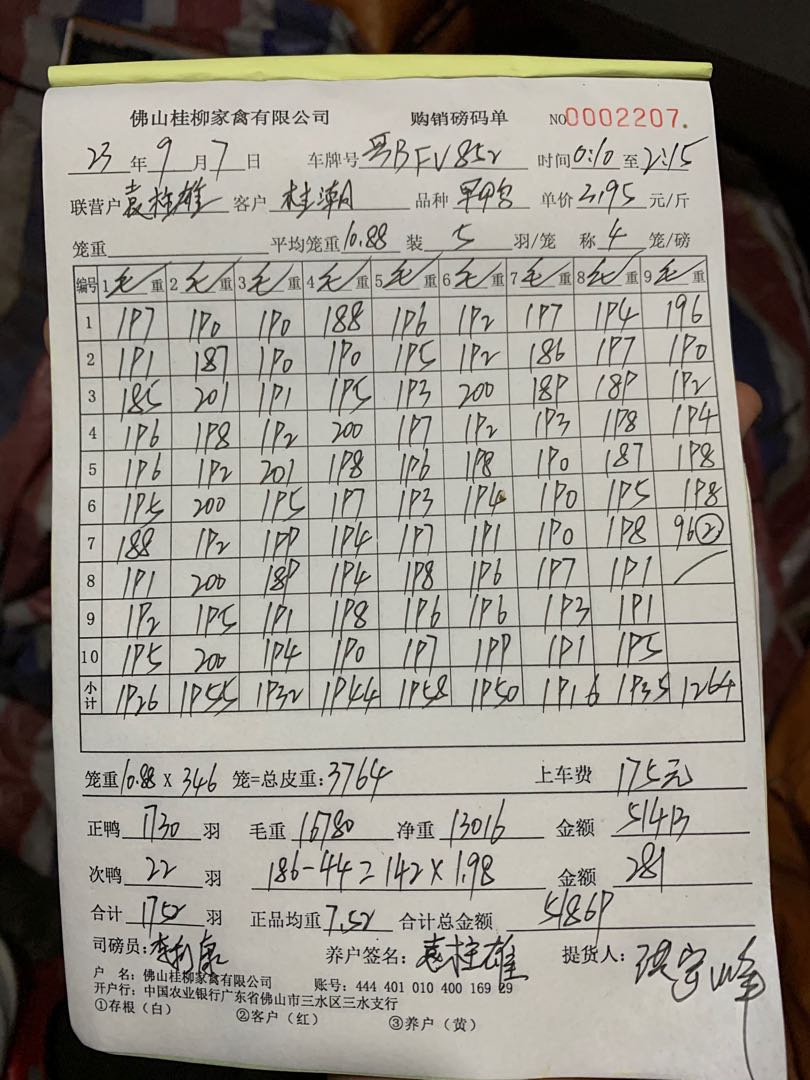 佛山桂柳家禽有限公司 购销磅码单 NO0002207
23 年 9 月 7 日 车牌号 粤BFV852 时间 0:10 至 2:15
联营户 袁柱雄 客户 桂潮 品种 单价 3.95 元/斤
笼重 平均笼重 10.88 装 5 羽/笼 称 4 笼/磅
编号 1 毛 重 2 毛 重 3 毛 重 4 毛 重 5 毛 重 6 毛 重 7 毛 重 8 毛 重 9 毛 重
1 197 190 190 188 196 192 197 194 196
2 191 187 190 190 195 192 186 197 190
3 185 201 191 195 193 200 189 189 192
4 196 198 192 200 197 192 193 198 194
5 196 192 201 198 196 198 190 187 198
6 195 200 195 197 193 194 190 195 198
7 188 192 199 194 197 191 190 198 96②
8 191 200 189 194 198 196 197 191 /
9 192 195 191 198 196 196 193 191
10 195 200 194 190 197 199 191 195
小计 1926 1955 1932 1944 1958 1950 1916 1935 1264
笼重 10.88 X 346 笼=总皮重: 3764 上车费 175元
正鸭 1730 羽 毛重 16780 净重 13016 金额 51413
次鸭 22 羽 186-44=142×1.98 金额 281
合计 1752 羽 正品均重 7.52 合计总金额 51869
司磅员: 养户签名: 袁柱雄 提货人:
户 名: 佛山桂柳家禽有限公司 账号: 444 401 010 400 169 29
开户行: 中国农业银行广东省佛山市三水区三水支行
①存根（白） ②客户（红） ③养户（黄）